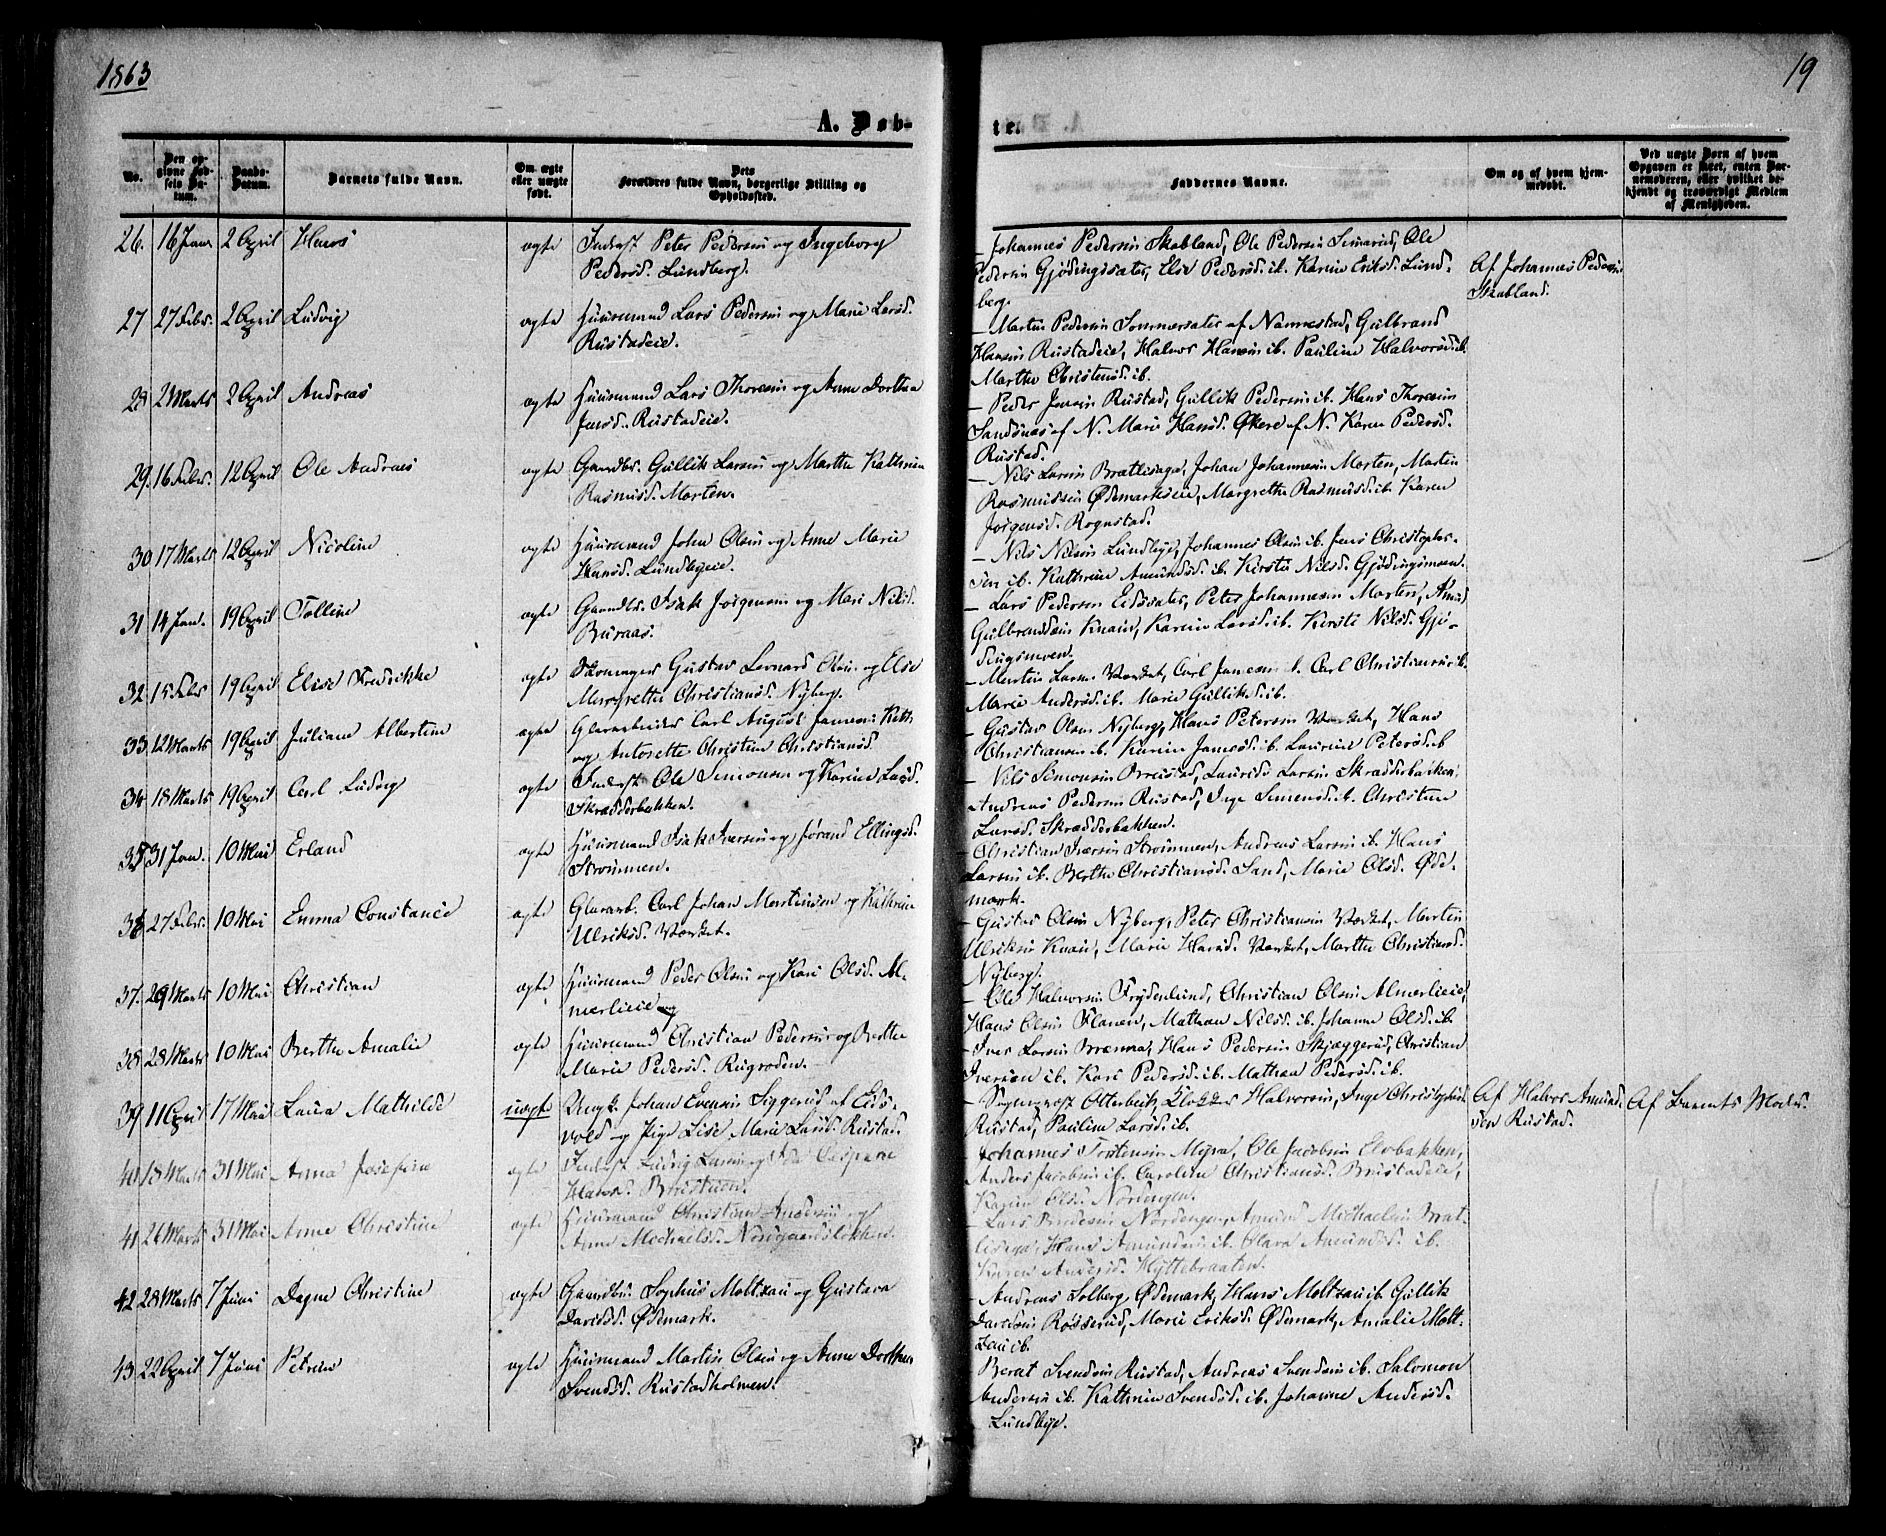 1863
19
A. Døb-
te.
No.
Den op-
givne Fød-
sels Da-
tum.
Daabs-
Datum.
Barnets fulde Navn.
Om ægte
eller uægte
født.
Dets
Forældres fulde Navn, borgerlige Stilling og
Opholdssted.
Faddernes Navne.
Om og af hvem hjem-
medøbt.
Ved uægte Born af hvem
Opgaven er skeet, enten Bar-
nemoderen, eller hvilket be-
kjendt og troværdigt Medlem
af Menigheden.
26. 16 Janr 2 April Hans ægte Inderst Peter Pedersen og Ingeborg
Pedersd. Lundberg.
- Johannes Pedersen Skabland, Ole Pedersen Ole
Pedersen Gjødingsæter, Else Pedersd. ib. Karine Eriksd. Lund-
berg.
Af Johannes Pedersen
Skabland.
27 27 Febr. 2 April Ludvig ægte Huusmand Lars Pedersen og Marie Larsd.
Rustadeie.
- Martin Pedersen Sommersæter af Nannestad, Gulbrand
Hansen Rustadeie, Halvor Hansen ib. Pauline Halvorsd. ib.
Marthe Christensd. ib.
28 2 Marts 2 April Andreas ægte Huusmand Lars Thoresen og Anne Dorthea
Jensd. Rustadeie.
- Peder Jensen Rustad, Gullik Pedersen ib. Hans Thoresen
Sandsnæs af N. Marie Hansd. Økere af N. Karen Pedersd.
Rustad.
29. 16 Febr. 12 April Ole Andreas ægte Gaardbr. Gullik Larsen og Marthe Kathrine
Rasmusd. Morten.
- Nils Larsen Brætlisaga, Johan Johannesen Morten, Martin
Rasmussen Ødemarkseie, Margrethe Rasmusd. ib. Karen
Jørgensd. Rognstad.
30 17 Marts 12 April Nicoline ægte Huusmand John Olsen og Anne Marie
Hansd. Lundbyeie.
- Nils Nilsen Lundbye, Johannes Olsen ib. Jens Christopher-
sen ib. Kathrine Amundsd. ib. Kirsti Nilsd. Gjødingsmoen.
31 14 Jan. 19 April Tolline ægte Gaardbr. Isak Jørgensen og Mari Nilsd.
Buraas.
- Lars Pedersen Eidssæter, Peter Johannesen Morten, Amund
Gulbrandsen Knain, Karine Larsd. ib. Kirsti Nilsd. Gjø-
dingsmoen.
32 15 Febr 19 April Elise Fredrikke ægte Gustav Leonard Olsen og Else
Margrethe Christiansd. Nyberg.
- Martin Larsen Værket, Carl Jansen ib. Carl Christiansen ib.
Marie Andersd. ib. Marie Gulliksd. ib.
33 12 Marts 19 April Juliane Albertine ægte Glasarbeider Carl August Jansen
og Antonette Christine Christiansd.
- Gustav Olsen Nyberg, Hans Petersen Værket, Hans
Christiansen ib. Karine Jansd. ib. Laurine Petersd. ib
34 18 Marts 19 April Carl Ludvig ægte Inderst Ole Simonsen og Karine Larsd.
Skrædderbakken.
- Nils Simonsen Breistad, Laurids Larsen Skrædderbakken,
Andreas Pedersen Rustad, Inge Simensd. ib. Christine
Larsd. Skrædderbakken.
35 31 Jan. 10 Mai Erland ægte Huusmand Isak Iversen og Jørand Ellingsd.
Strømmen.
Christian Iversen Strømmen, Andreas Larsen ib. Hans
Larsen ib. Berthe Christiansd. Sand, Marie Olsd. Øde-
mark.
36 27 Febr. 10 Mai Emma Constance ægte Glasarb. Carl Johan Martinsen og Kathrine
Ulriksd. Værket.
- Gustav Olsen Nyberg, Peter Christiansen Værket, Martin
Ulriksen Knain, Marie Hansd. Værket, Marthe Christiansd.
Nyberg.
37. 29 Marts 10 Mai Christian ægte Huusmand Peder Olsen og Kari Olsd. Al-
merlieie
- Ole Halvorsen Frydenlund, Christian Olsen Almerlieie,
Hans Olsen Flanen, Mathea Nilsd. ib. Johanne Olsd. ib.
38 28 Marts 10 Mai Berthe Amalie ægte Huusmand Christian Pedersen og Berthe
Marie Pedersd. Rugroden.
- Iver Larsen Brænna, Hans Pedersen Skjæggerud, Christian
Iversen ib. Kari Pedersd. ib. Mathea Pedersd. ib.
39 11 April 17 Mai Laura Mathilde uægte Ungk. Johan Evensen Siggerud af Eids-
vold og Pige Lise Marie Larsd. Rustad.
- Sognepræst Otterbech, Klokker Halvorsen, Inge Christophersd.
Rustad, Pauline Larsd. ib.
Af Halvor Amund-
sen Rustad.
Af Barnets Moder.
40 18 Marts 31 Mai Anna Josefine ægte Inderst Ludvig Larsen og
Hansd.
Johannes Torstensen Myra, Ole Jacobsen Elvbakken,
Anders Jacobsen ib. Caroline Christiansd.
Karen Olsd. Nordengen.
41 26 Marts 31 Mai Anne Christine ægte Huusmand Christian Andersen og
Anne Michaelsd. Nordgaardsløkken.
- Lars Nordengen, Amund Michaelsen Bræt-
lisaga, Hans Amundsen ib. Clara Amundsd. ib.
Karen Andersd. Hyttebraaten.
42 28 Marts 7 Juni Dagne Christine ægte Gaardbr. Sophus Moltzau og Gustava
Davidsd. Ødemark.
- Andreas Solberg Ødemark, Hans Moltzau ib. Gullik
Davidsen Røsserud, Marie Eriksd. Ødemark, Amalie Molt-
zau ib.
43 22 April 7 Juni Petrine ægte Huusmand Martin Olsen og Anne Dorthea
Svendsd. Rustadholmen.
Bernt Svendsen Rustad, Andreas Svendsen ib. Salomon
Andersen ib. Kathrine Svendsd. ib. Johanne Andersd.
Lundbye.